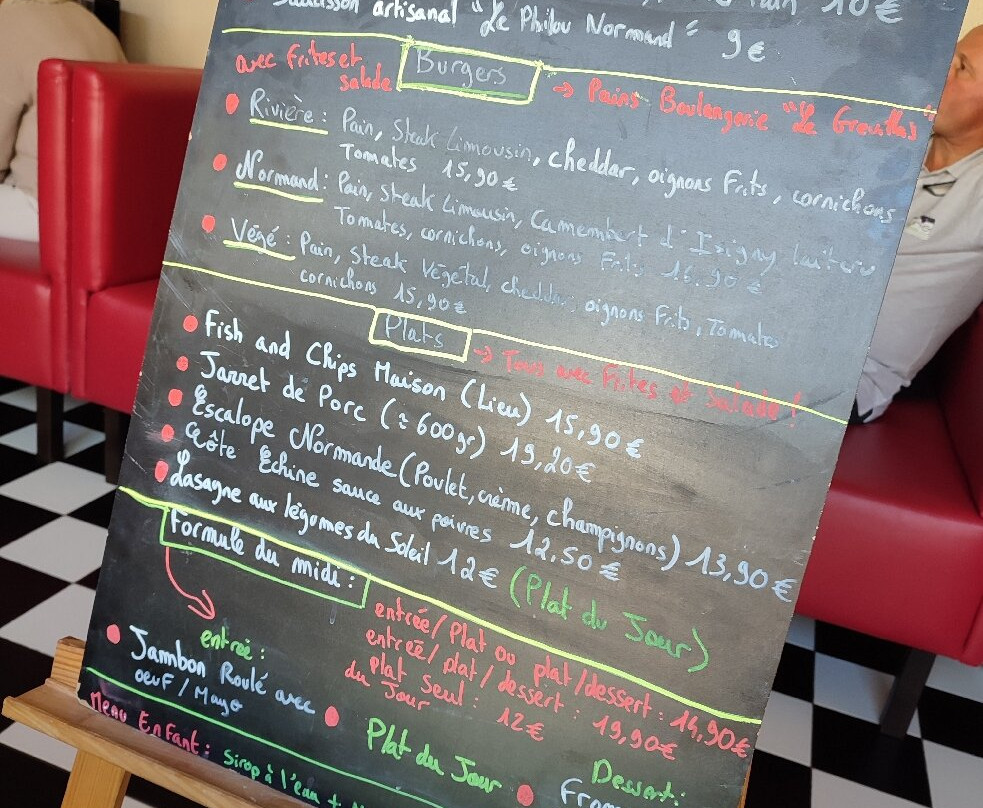 artisanal "Le Philou Normand" 9€
10€
avec Frites et salade
Burgers
→ Pains Boulangerie "Le
Rivière : Pain, Steak Limousin, cheddar, oignons Frits, cornichons
Tomates 15,90€
Normand : Pain, Steak Limousin, Camembert d'Isigny
Tomates, cornichons, oignons Frits
Végé : Pain, Steak Végétal, cheddar, oignons Frits, Tomates
cornichons 15,90€
Plats
→ Tous avec Frites et Salade !
Fish and Chips Maison (Lieu) 15,90€
Jarret de Porc (≈ 600gr) 19,20€
Escalope Normande (Poulet, crème, champignons) 13,90€
Côte Echine sauce aux poivres 12.50€
Lasagne aux légumes du Soleil 12€ (Plat du Jour)
Formule du midi :
entrée/Plat ou plat/dessert : 14,90€
entreé/plat/dessert : 19,90€
Plat Seul : 12€
du Jour
entreé :
Jambon Roulé avec
oeuf/Mayo
Plat du Jour
Dessert :
Menu Enfant : Sirop à l'eau +